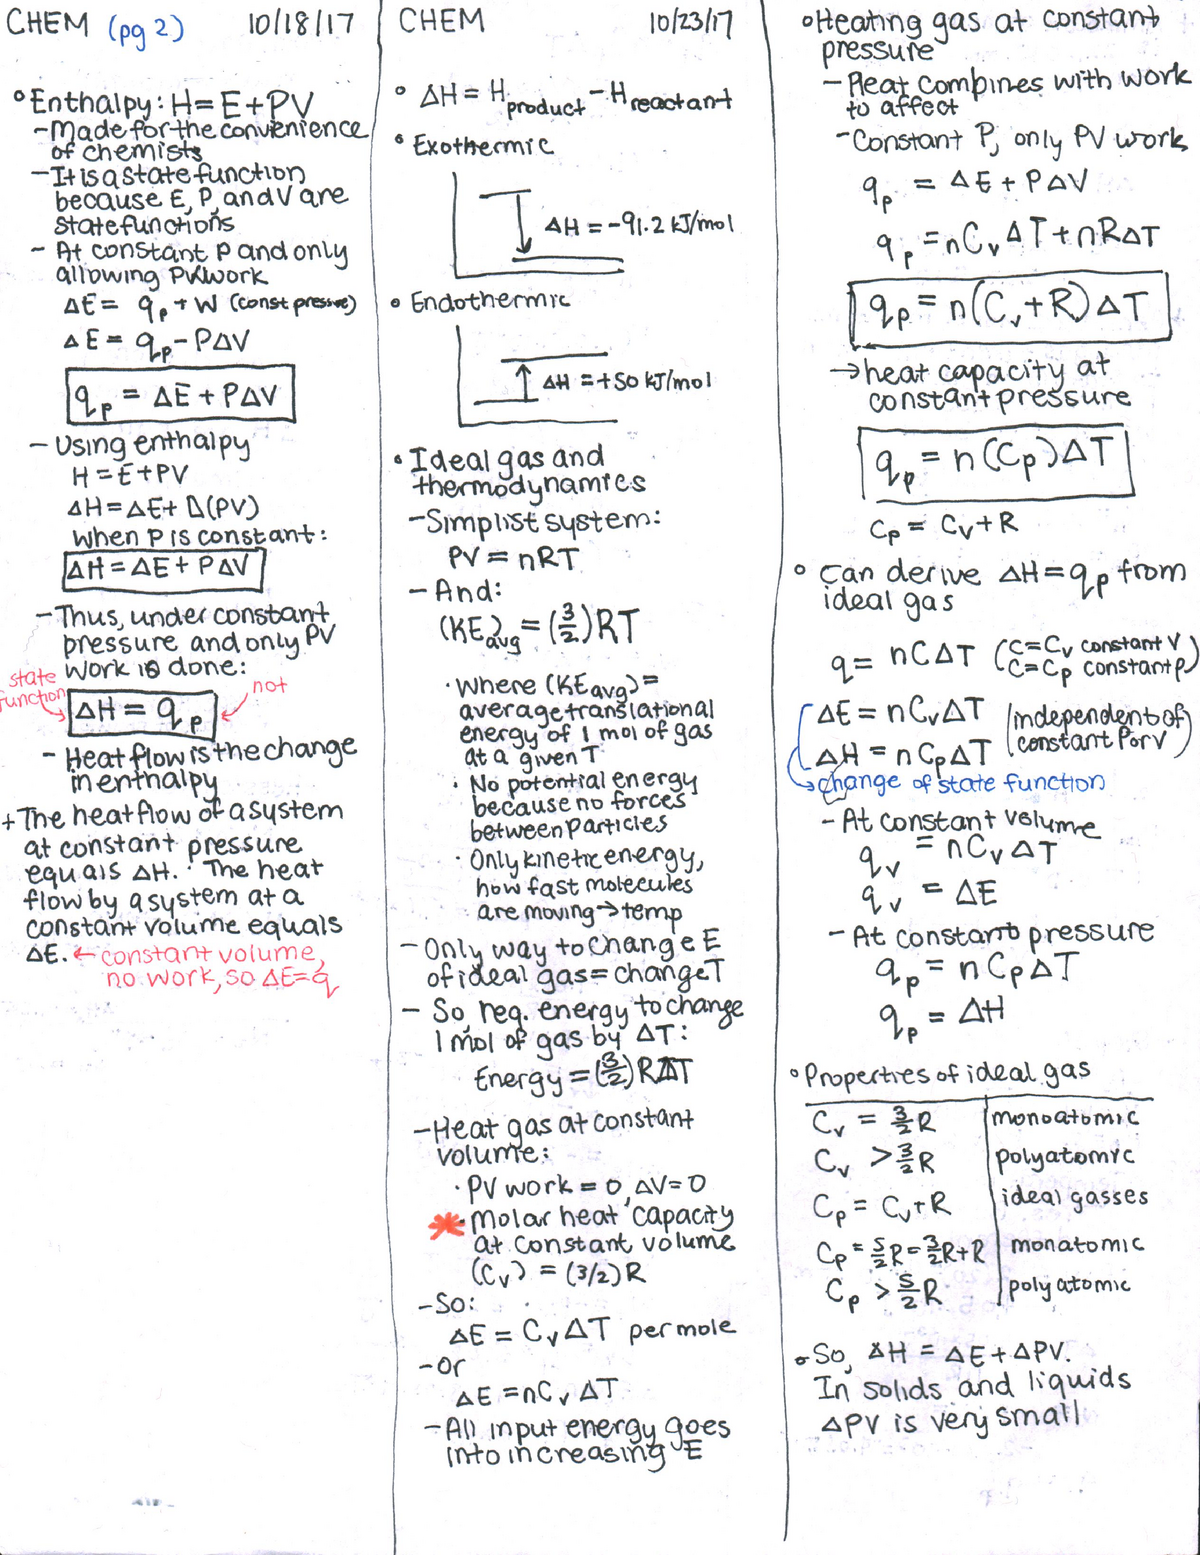 CHEM (pg 2) 10/18/17
° Enthalpy: H = E + PV
- Made for the convenience
of chemists
- It is a state function
because E, P, and V are
state functions
- At constant P and only
allowing PV work
ΔE = qp + W (const pressure)
ΔE = qp - PΔV
qp = ΔE + PΔV
- Using enthalpy
H = E + PV
ΔH = ΔE + Δ(PV)
when P is constant:
ΔH = ΔE + PΔV
- Thus, under constant
pressure and only PV
work is done:
state
function
ΔH = qp
not
- Heat flow is the change
in enthalpy
+ The heat flow of a system
at constant pressure
equals ΔH. The heat
flow by a system at a
constant volume equals
ΔE. ← constant volume,
no work, so ΔE = q
CHEM 10/23/17
° ΔH = Hproduct - Hreactant
° Exothermic
ΔH = -91.2 kJ/mol
° Endothermic
ΔH = +50 kJ/mol
° Ideal gas and
thermodynamics
- Simplist system:
PV = nRT
- And:
(KE)avg = (3/2)RT
· Where (KEavg) =
average translational
energy of 1 mol of gas
at a given T
· No potential energy
because no forces
between particles
· Only kinetic energy,
how fast molecules
are moving → temp
- Only way to change E
of ideal gas = change T
- So, req. energy to change
1 mol of gas by ΔT:
Energy = (3/2)RΔT
- Heat gas at constant
volume:
· PV work = 0, ΔV = 0
* · Molar heat capacity
at constant volume
(Cv) = (3/2)R
- So:
ΔE = CvΔT per mole
- Or
ΔE = nCvΔT
- All input energy goes
into increasing E
° Heating gas at constant
pressure
- Heat combines with work
to affect
- Constant P, only PV work
qp = ΔE + PΔV
qp = nCvΔT + nRΔT
qp = n(Cv + R)ΔT
→ heat capacity at
constant pressure
qp = n(Cp)ΔT
Cp = Cv + R
° Can derive ΔH = qp from
ideal gas
q = nCΔT (C = Cv constant V
C = Cp constant P)
ΔE = nCvΔT (independent of
ΔH = nCpΔT constant P or V)
→ change of state function
- At constant volume
qv = nCvΔT
qv = ΔE
- At constant pressure
qp = nCpΔT
qp = ΔH
° Properties of ideal gas
Cv = 3/2 R monoatomic
Cv > 3/2 R polyatomic
Cp = Cv + R ideal gasses
Cp = 5/2 R = 3/2 R + R monatomic
Cp > 5/2 R polyatomic
° So, ΔH = ΔE + ΔPV.
In solids and liquids
ΔPV is very small